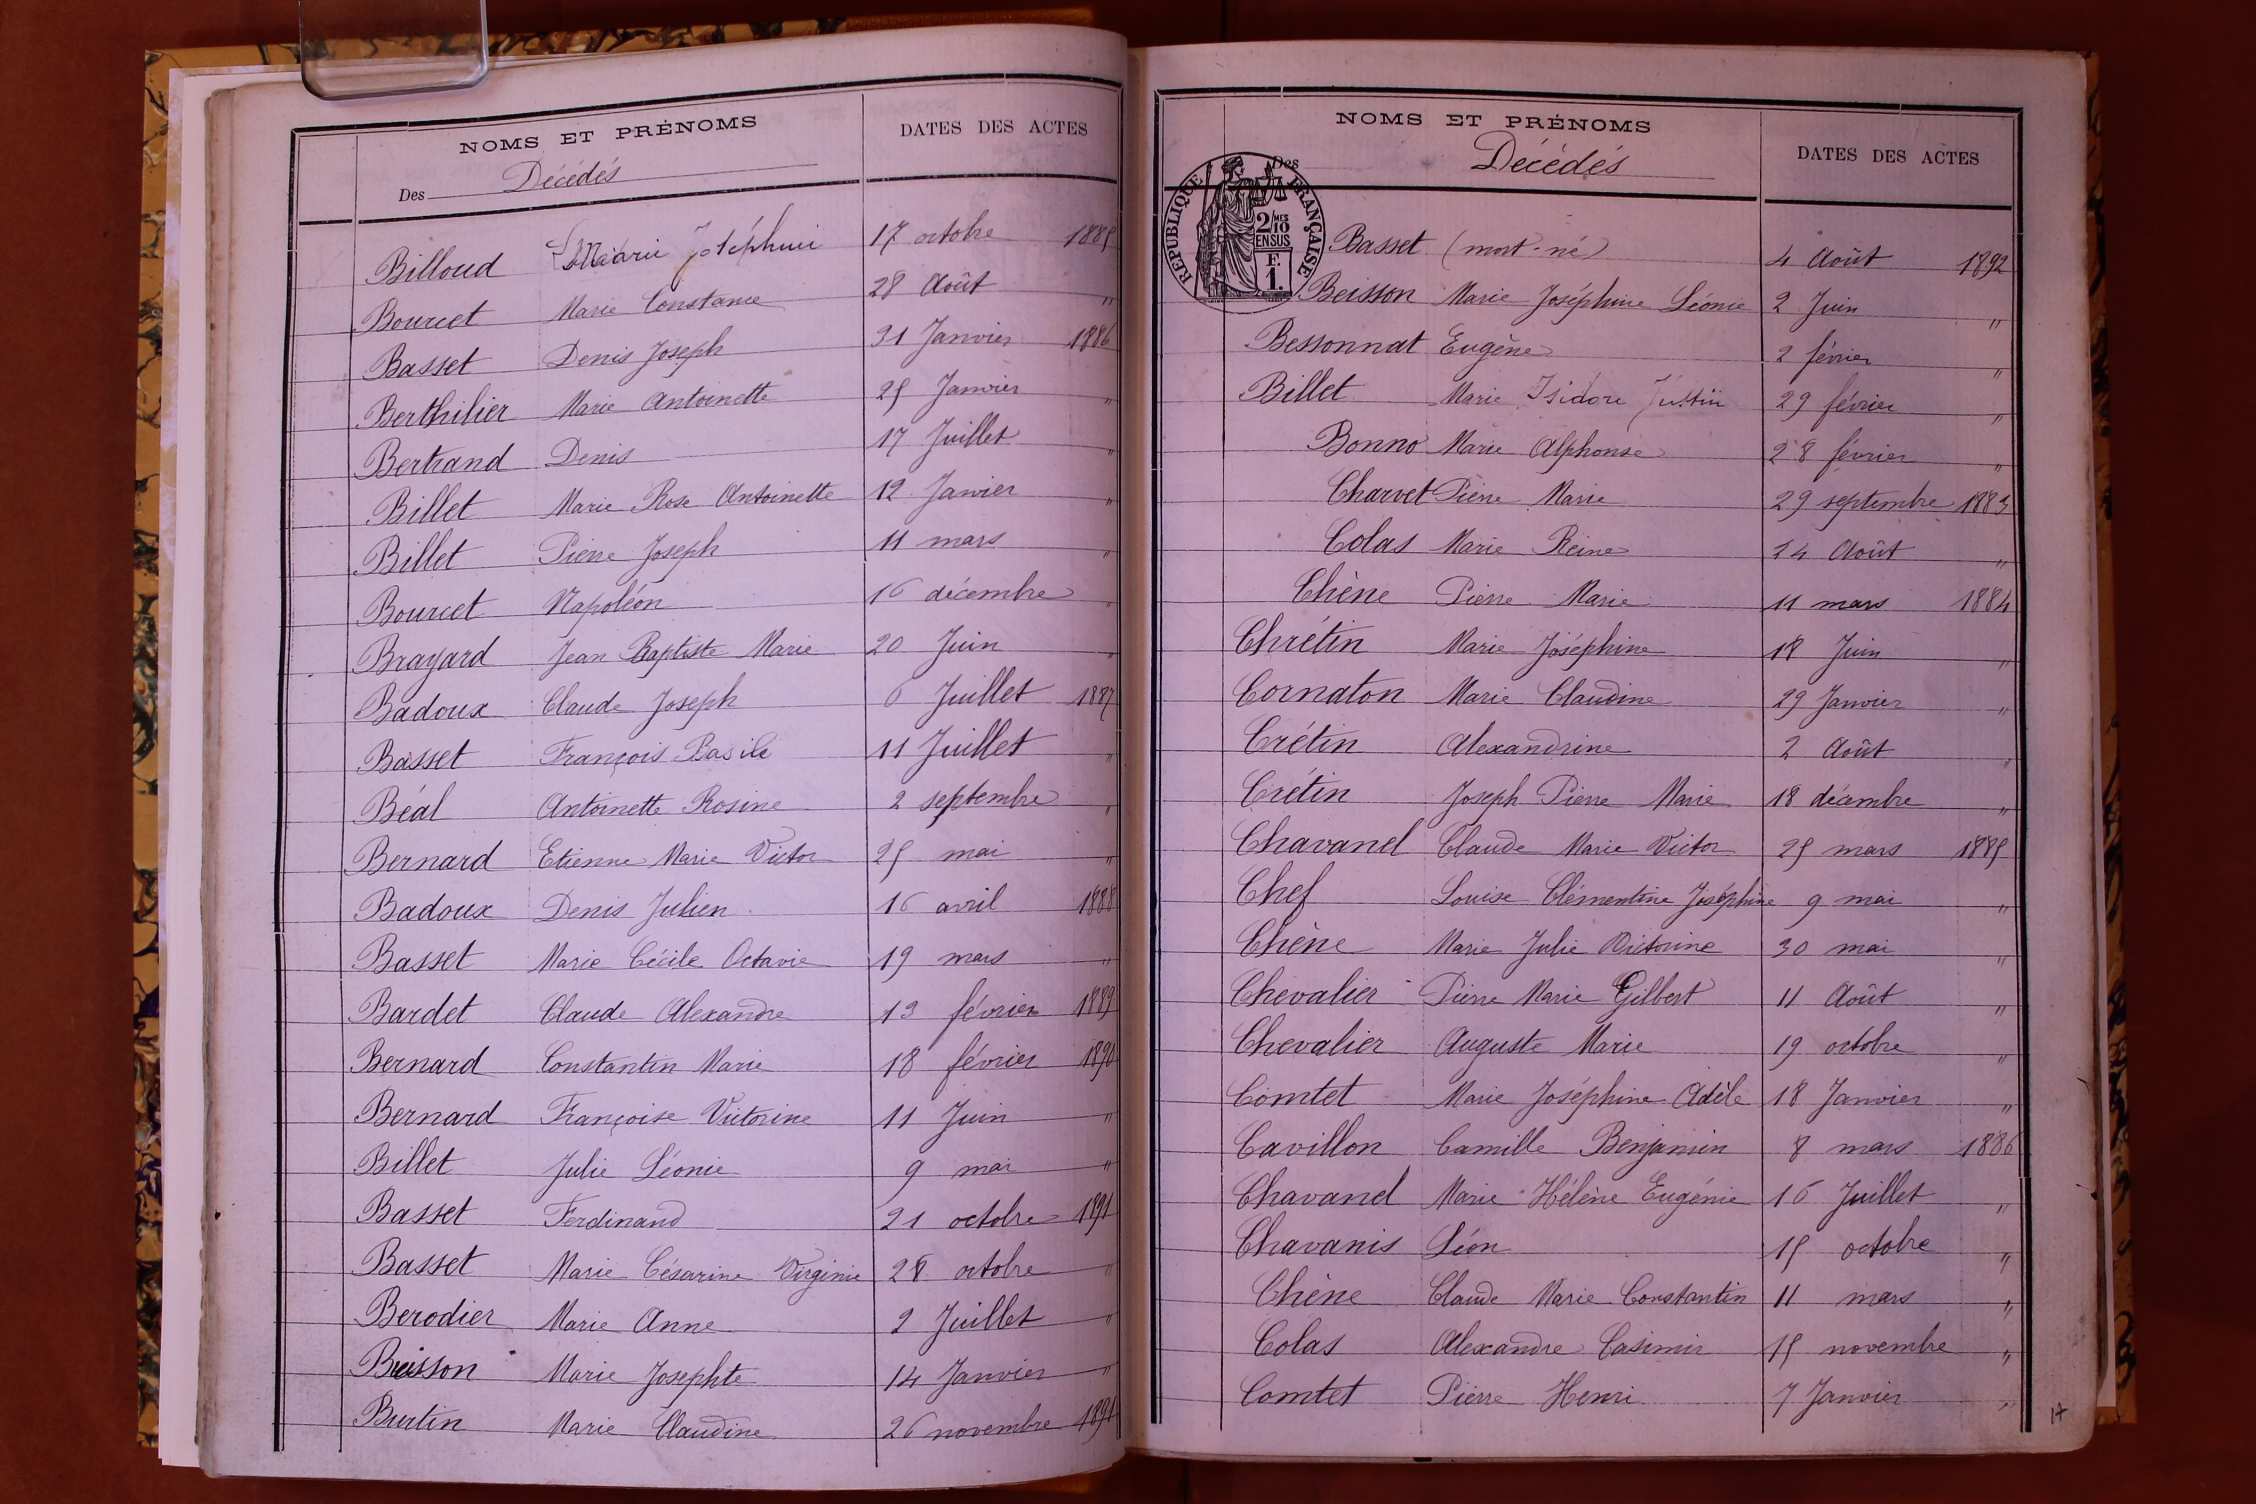 NOMS ET PRÉNOMS DATES DES ACTES
Des Décédés
Billoud Marie Joséphine 17 octobre 1885
Bourcet Marie Constance 28 Août "
Basset Denis Joseph 31 Janvier 1886
Berthilier Marie Antoinette 25 Janvier "
Bertrand Denis 17 Juillet "
Billet Marie Rose Antoinette 12 Janvier "
Billet Pierre Joseph 11 mars "
Bourcet Napoléon 16 décembre "
Brayard Jean Baptiste Marie 20 Juin "
Badoux Claude Joseph 6 Juillet 1887
Basset François Basile 11 Juillet "
Béal Antoinette Rosine 2 septembre "
Bernard Etienne Marie Victor 25 mai "
Badoux Denis Julien 16 avril 1888
Basset Marie Cécile Octavie 19 mars "
Bardet Claude Alexandre 13 février 1889
Bernard Constantin Marie 18 février 1890
Bernard Françoise Victorine 11 Juin "
Billet Julie Léonie 9 mai "
Basset Ferdinand 21 octobre 1891
Basset Marie Césarine Virginie 28 octobre "
Berodier Marie Anne 2 Juillet "
Buisson Marie Josephte 14 Janvier "
Burtin Marie Claudine 26 novembre 1891
NOMS ET PRÉNOMS DATES DES ACTES
Des Décédés
RÉPUBLIQUE FRANÇAISE
2/10 MES
EN SUS
F.
1.
Basset (mort-né) 4 Août 1892
Beisson Marie Joséphine Léonie 2 Juin "
Bessonnat Eugène 2 février "
Billet Marie Isidore Justin 29 février "
Bonno Marie Alphonse 28 février "
Charvet Pierre Marie 29 septembre 1883
Colas Marie Reine 14 Août "
Chêne Pierre Marie 11 mars 1884
Chrétin Marie Joséphine 18 Juin "
Cornaton Marie Claudine 29 Janvier "
Crétin Alexandrine 2 Août "
Crétin Joseph Pierre Marie 18 décembre "
Chavand Claude Marie Victor 25 mars 1885
Chef Louise Clémentine Joséphine 9 mai "
Chêne Marie Julie Victorine 30 mai "
Chevalier Pierre Marie Gilbert 11 Août "
Chevalier Auguste Marie 19 octobre "
Comtet Marie Joséphine Adèle 18 Janvier "
Cavillon Camille Benjamin 8 mars 1886
Chavand Marie Hélène Eugénie 16 Juillet "
Chavanis Léon 15 octobre "
Chêne Claude Marie Constantin 11 mars "
Colas Alexandre Casimir 15 novembre "
Comtet Pierre Henri 7 Janvier "
17